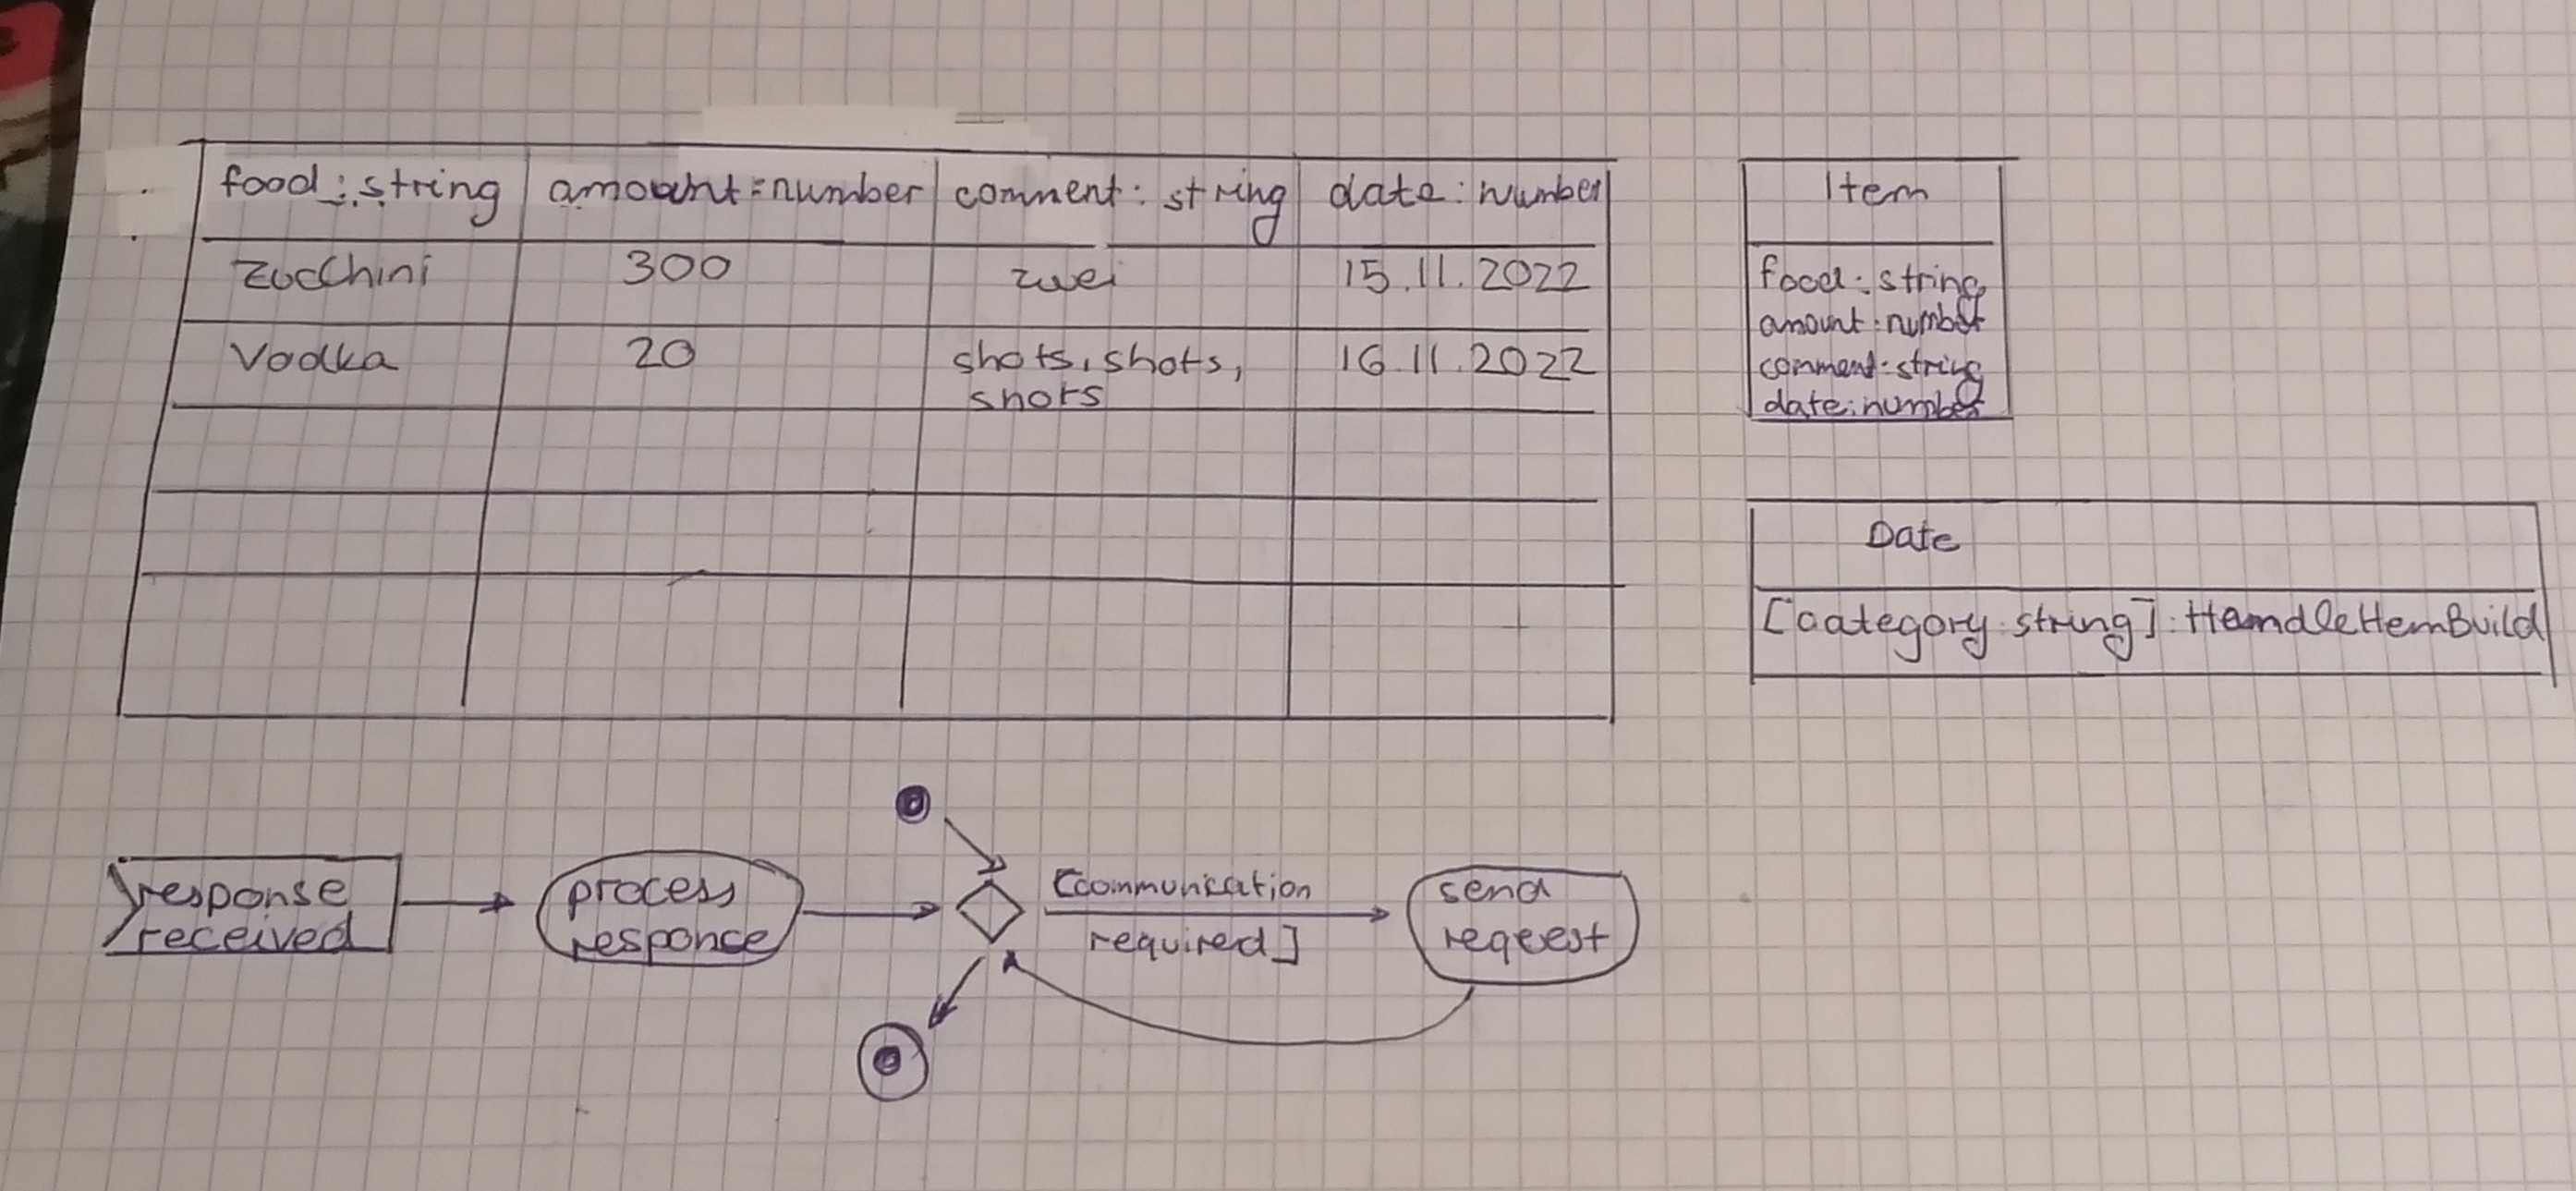 food : string amount : number comment : string date : number
Zucchini 300 zwei 15.11.2022
Vodka 20 shots, shots, 16.11.2022
shots
Item
food : string
amount : number
comment : string
date : number
Date
[category : string] : HandleItemBuild
response
received
process
responce
[communication
required]
send
reqeest